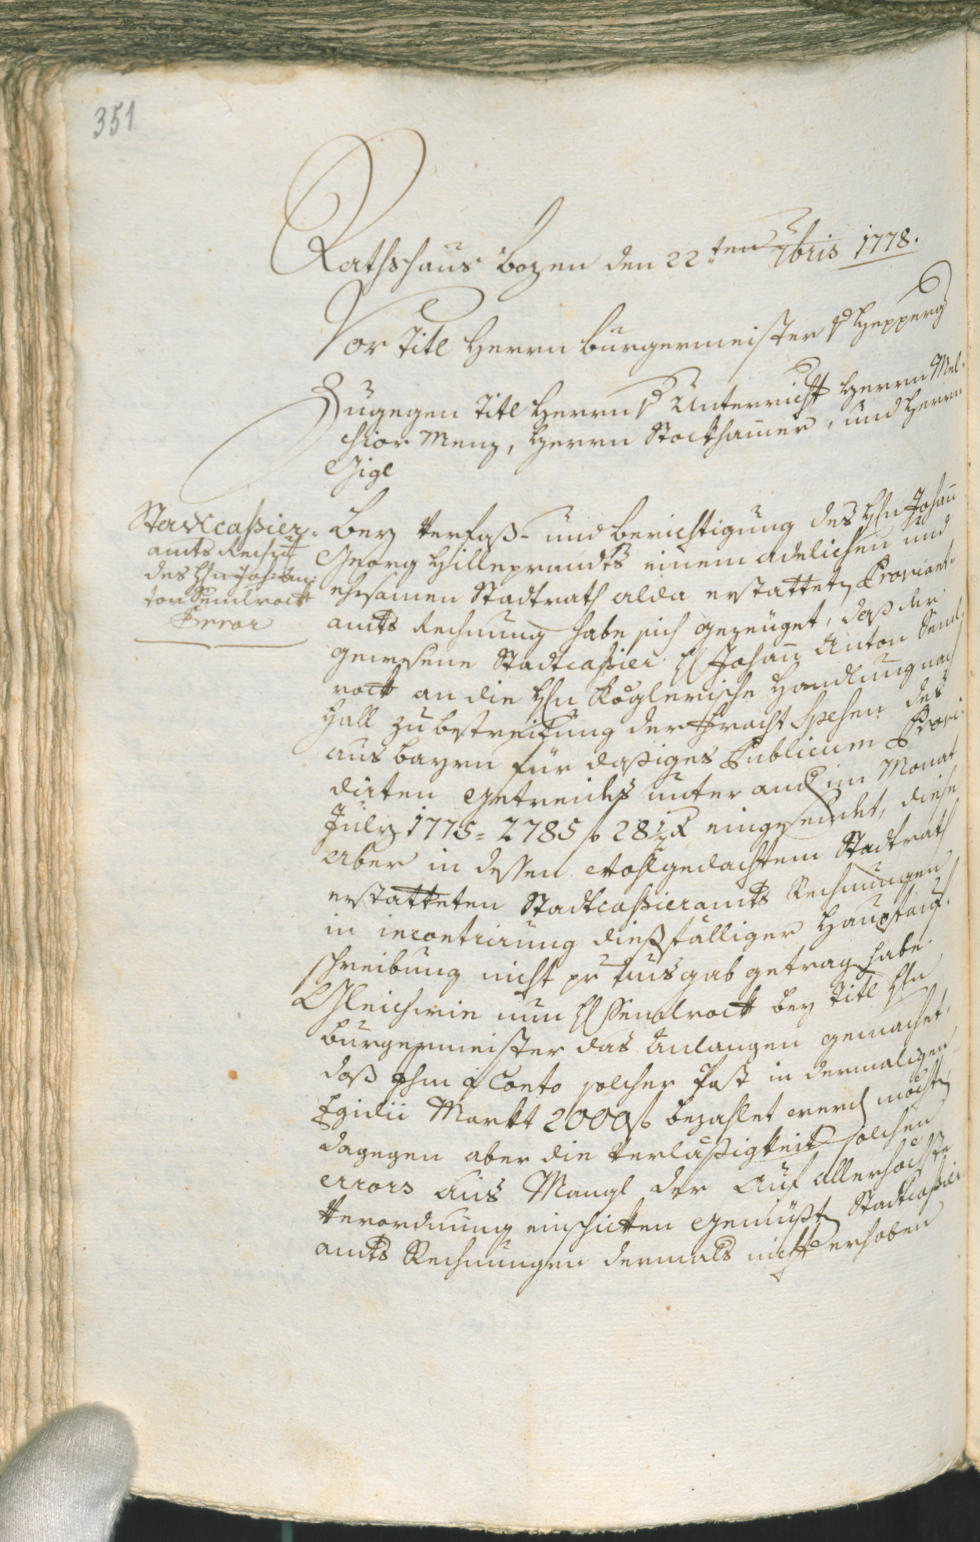 351
Rathshaus Bozen den 22ten 7bris 1778.
Vor Titl Herrn Burgermeister v Hepperg
Zugegen Titl Herrn v Unterricht Herrn Mel-
chior Menz, Herrn Stockhamer, und Herrn
Gigl
Stadtcassier-
amts Rechnung
des Hn Joh: An-
ton Sendrock
Error
Bey Verfaß- und Berichtigung des Hn Johan
Georg Hilleprandts einem adelichen und
ehrsamen Stadtrath alda erstatteten Proviant-
amts Rechnung habe sich gezeuget, daß der
gewesene Stadtcassier H Johan Anton Send-
rock an die Hn Köglerische Handlung nach
Hall zu Bestreittung der Fracht Spesen des
aus Bayrn für dasiges Publicum Provi-
dirten Getreides unter and im Monat
July 1775 = 2785 f 28½ x eingesendet, diese
aber in dessen wohlgedachtem Stadtrath
erstatteten Stadtcassieramts Rechnungen
in incontrirung dießfälliger Hauptauf-
schreibung nicht pr Ausgab getragen habe.
Gleichwie nun H Sendrock bey Titl Hn
Burgermeister das Anlangen gemachet,
daß Ihm a Conto solcher Post in dermaligen
Egidii Markt 2000 f bezahlet werden möchten
dagegen aber die Verläßigkeit solchen
errors aus Mangl der auf Allerhöchste
Verordnung einschicken gemüßten Stadtcassier
amts Rechnungen dermals nicht erhoben